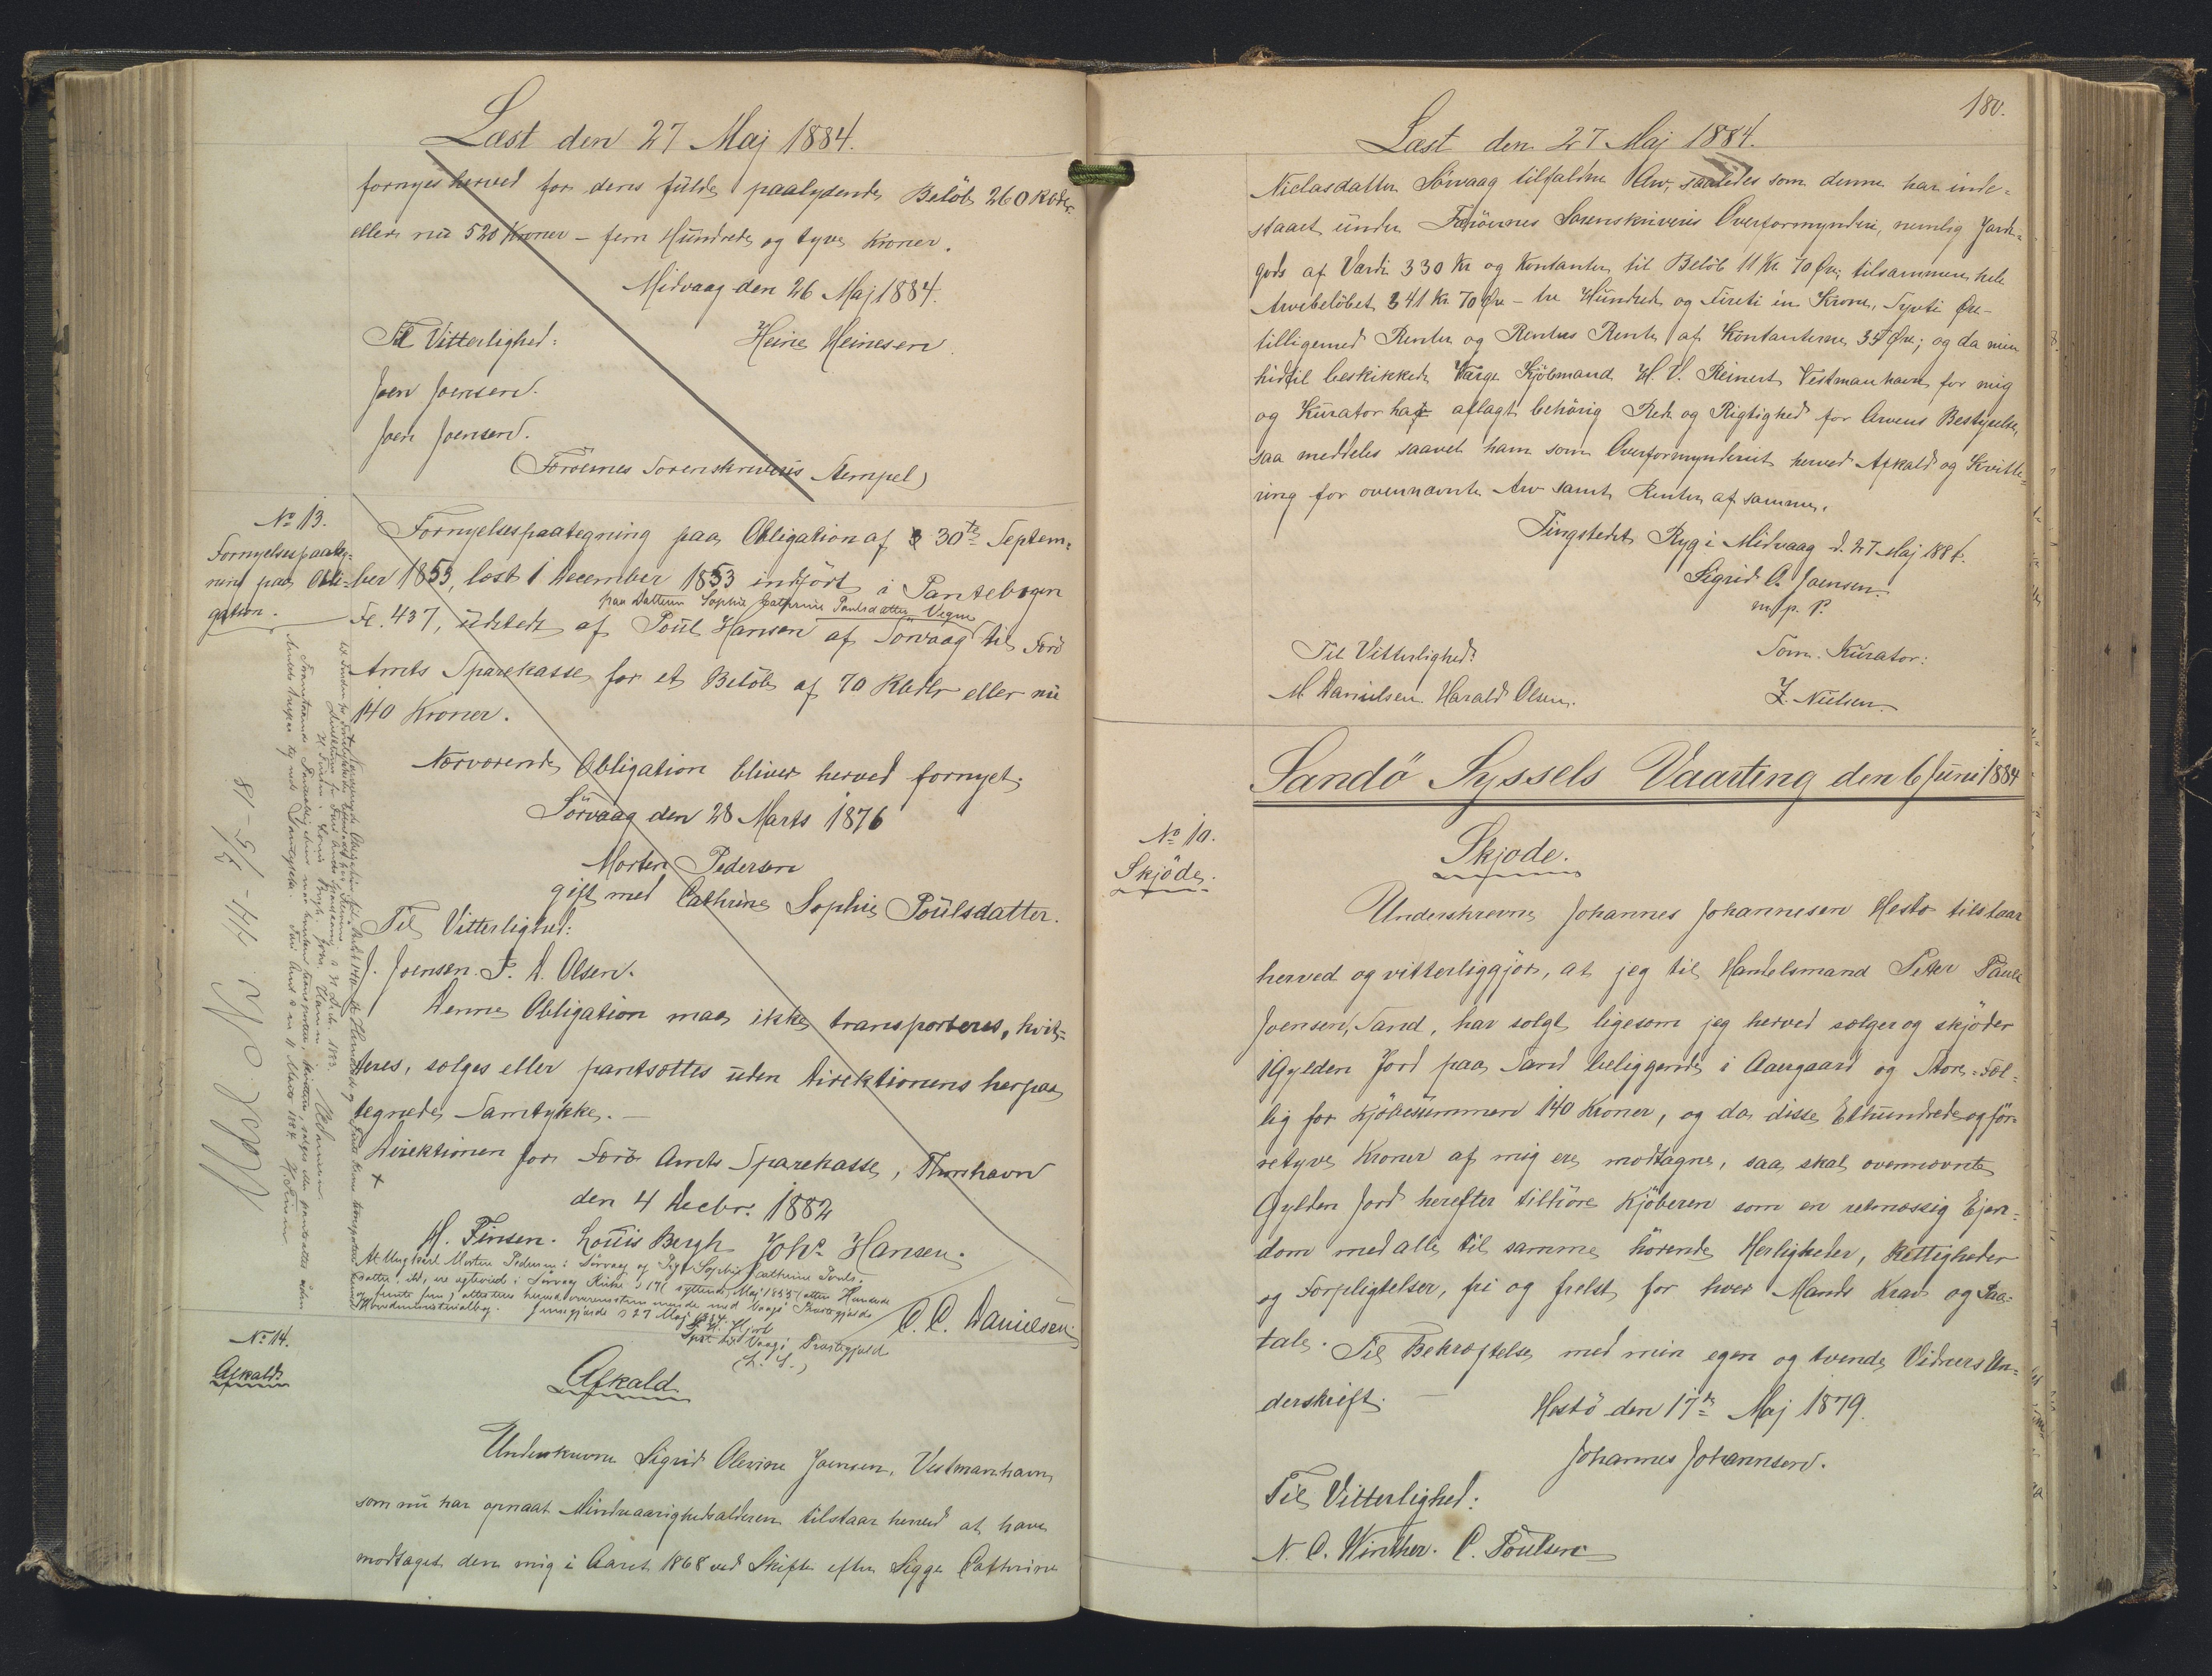 Læst den 27 Maj 1884.
fornyes herved for deres fulde paalydende Beløb 260 Rbdlr.
eller nu 520 Kroner – fem Hundrede og tyve Kroner.
Midvaag den 26 Maj 1884.
Til Vitterlighed:
Heine Heinesen.
Joen Joensen.
Joen Joensen.
(Færøernes Sorenskriveris Stempel)
No 13.
Fornyelsespaateg-
ning paa Obli-
gation.
Fornyelsespaategning paa Obligation af 30te Septem-
ber 1853, læst 1 December 1853 indført i Pantebogen
paa Datteren Sophie Cathrine Poulsdatters Vegne
Fo. 437, udstedt af Poul Hansen af Sørvaag til Færø
Amts Sparekasse for et Beløb af 70 Rbdlr eller nu
140 Kroner.
Nærværende Obligation bliver herved fornyet.
Sørvaag den 28 Marts 1876
Morten Pedersen
gift med Cathrine Sophie Poulsdatter.
Til Vitterlighed:
J. Joensen. P. D. Olsen.
Denne Obligation maa ikke transporteres, kvit-
teres, sælges eller pantsættes uden Direktionens herpaa
tegnede Samtykke. –
Direktionen for Færø Amts Sparekasse, Thorshavn
den 4 Decbr. 1882
H. Finsen. Louis Bergh Johs Hansen.
At Ungkarl Morten Pedersen i Sørvaag og Pige Sophie Cathrine Pouls-
datter ibd, ere ægteviede i Sørvaag Kirke d 17 (syttende) Maj 1855 (atten Hundrede
og femti fem) attesteres herved overensstemmende med Vaagø Præstegjelds
Hovedministerialbog. Jansagjærde d 27 Maj 1884.
Hjort
Spr. til Vaagø Præstegjeld
(L. S.)
C. C. Danielsen.
No 14.
Afkald
Afkald
Underskrevne Sigrid Olevine Joensen, Vestmanhavn,
som nu har opnaaet Mindreaarighedsalderen tilstaar herved at have
modtaget den mig i Aaret 1868 ved Skifte efter Sigge Cathrine
180.
Læst den 27 Maj 1884.
Niclasdatter Sørvaag tilfaldne Arv, saaledes som denne har inde-
staaet under Færøernes Sorenskriveris Overformynderi, nemlig Jorde-
gods af Værdi 330 Kr og Kontanter til Beløb 11 Kr 70 Øre, tilsammen hele
Arvebeløbet 341 Kr 70 Øre – tre Hundrede og Fireti én Krone, Syvti Øre –
tilligemed Renter og Renters Rente af Kontanterne 35 Øre; og da min
hidtil beskikkede Værge Kjøbmand H. V. Reinert Vestmanhavn for mig
og Kurator har aflagt behørig Rede og Rigtighed for Arvens Bestyrelse,
saa meddeles saavel ham som Overformynderiet herved Afkald og Kvitte-
ring for ovennævnte Arv samt Renter af samme.
Tingstedet Ryg i Midvaag d. 27 Maj 1884.
Sigrid O. Joensen.
m. p. P.
Til Vitterlighed:
Som Kurator:
M. Danielsen. Harald Olsen.
Z. Nielsen.
Sandø Syssels Vaarting den 6 Juni 1884
No 10.
Skjøde.
Skjøde.
Underskrevne Johannes Johannesen Hestø tilstaar
herved og vitterliggjør, at jeg til Handelsmand Peter Pauli
Joensen, Sand, har solgt ligesom jeg herved sælger og skjøder
1 Gylden Jord paa Sand beliggende i Aaergaard og Store-Føl-
lig for Kjøbesummen 140 Kroner, og da disse Ethundrede og før-
retyve Kroner af mig ere modtagne, saa skal ovennævnte
Gylden Jord herefter tilhøre Kjøberen som en retmæssig Ejen-
dom med alle til samme hørende Herligheder, Rettigheder
og Forpligtelser, fri og frelst for hver Mands Krav og Paa-
tale. Til Bekræftelse med min egen og tvende Vidners Un-
derskrift. –
Hestø den 17de Maj 1879.
Johannes Johannsen.
Til Vitterlighed:
N. C. Winther. C. Poulsen